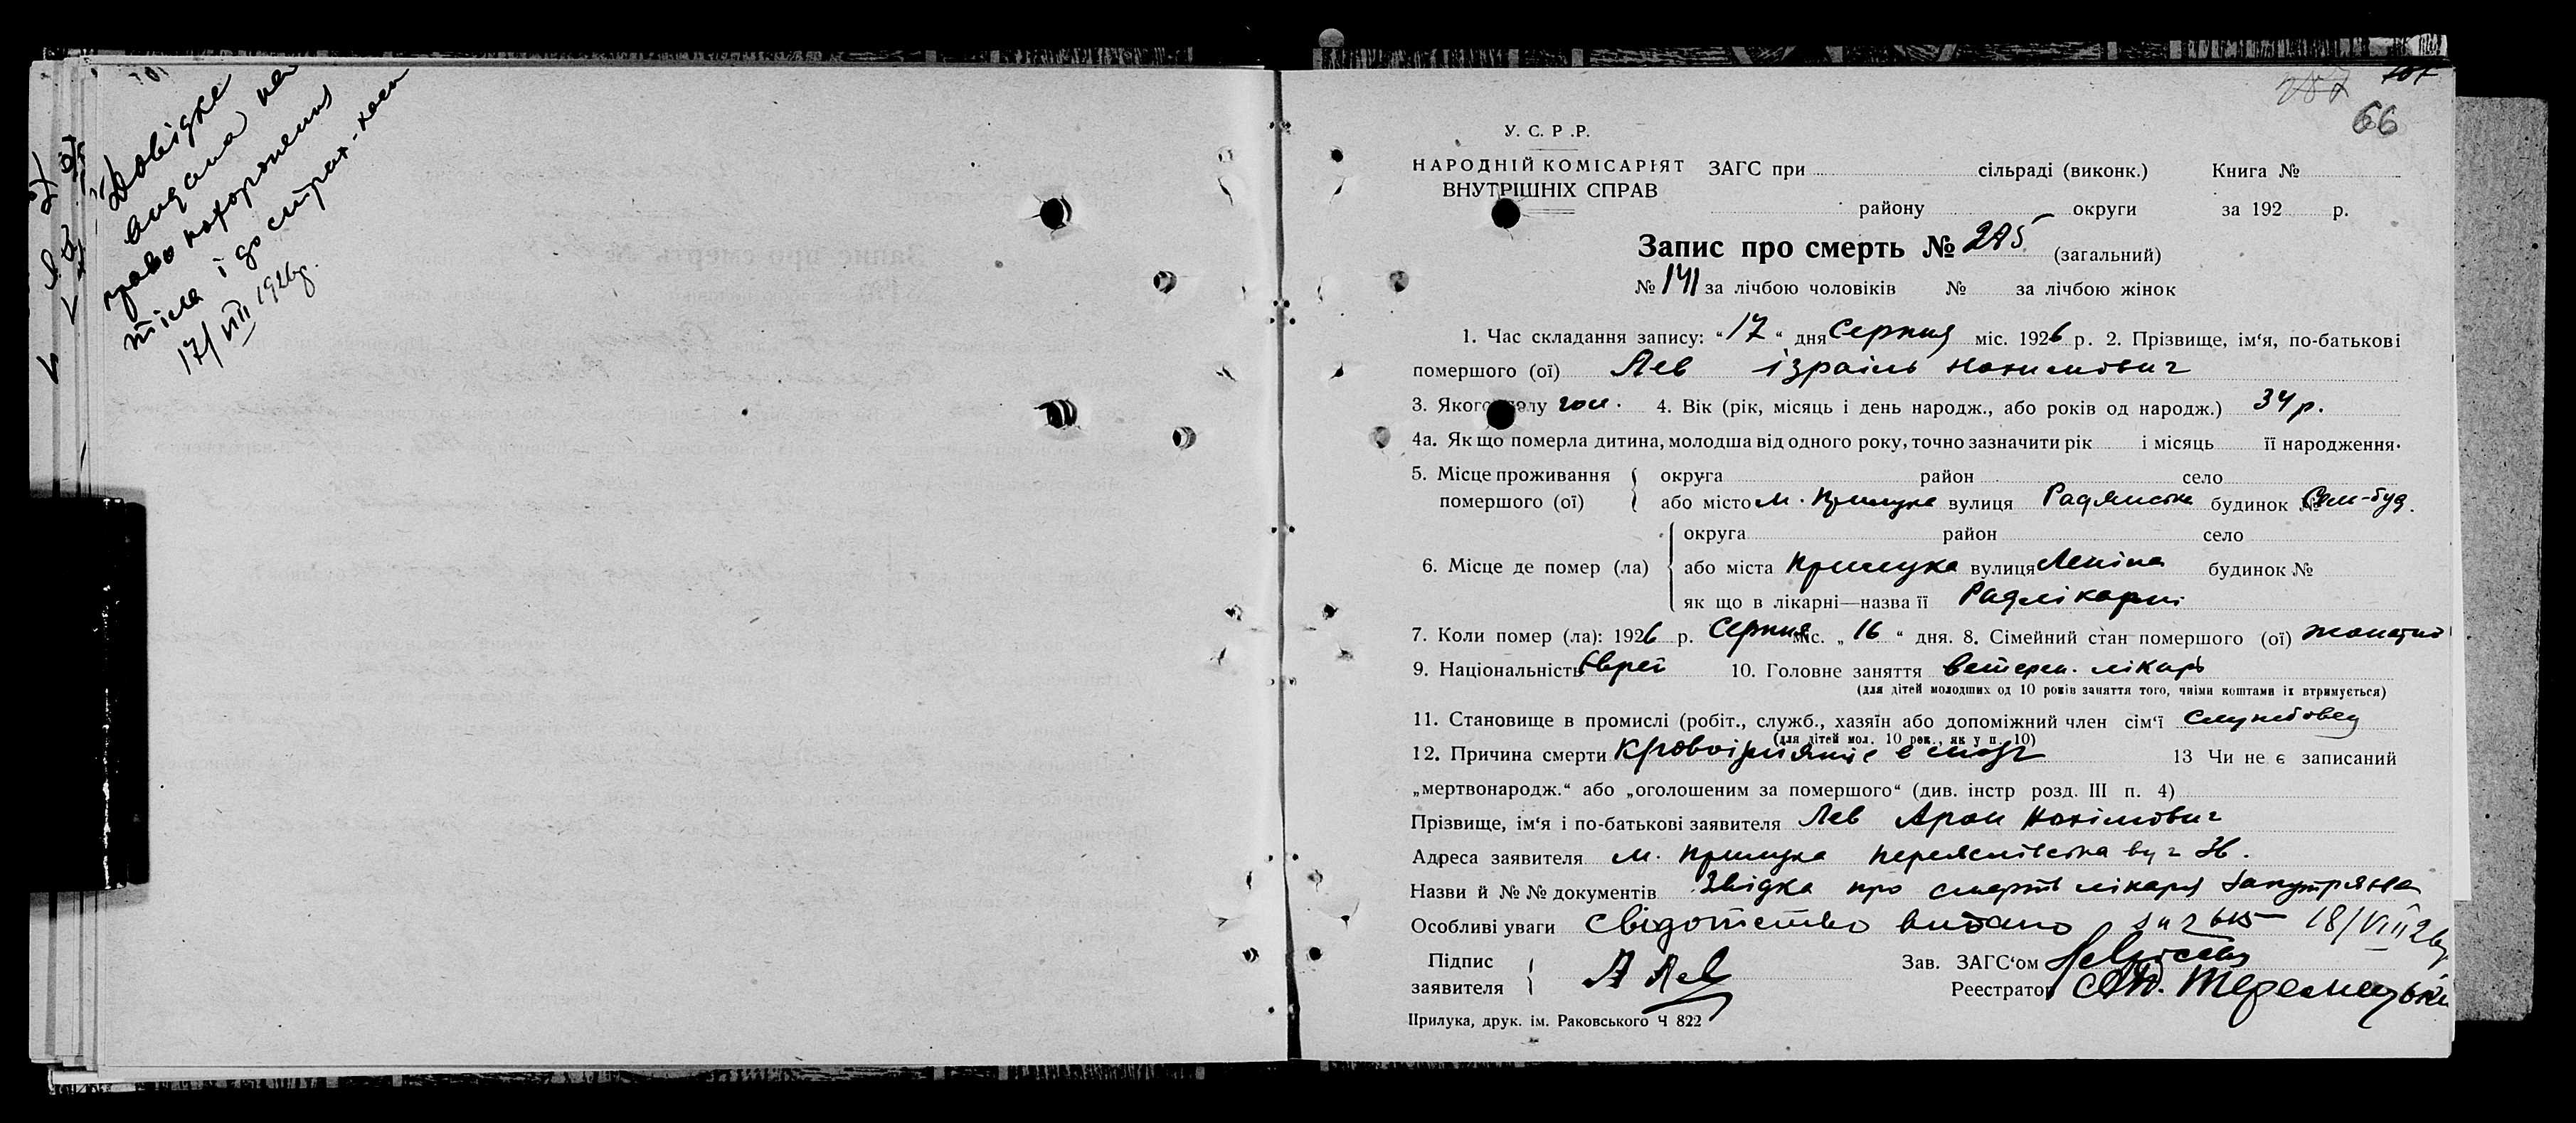 Довідка
видана на
право похоронення
тіла і до страх-каси
17/VIII 1926р.
66
У. С. Р .Р.
НАРОДНІЙ КОМІСАРІЯТ ЗАГС при сільраді (виконк.) Книга №
ВНУТРІШНІХ СПРАВ
району округи за 192 р.
Запис про смерть № 275 (загальний)
№ 141 за лічбою чоловіків № за лічбою жінок
1. Час складання запису: “17“ дня Серпня міс. 1926 р. 2. Прізвище, ім‘я, по-батькові
помершого (ої) Лев Ізраіль Нохимович
3. Якого полу чол. 4. Вік (рік, місяць і день народж., або років од народж.) 34 р.
4а. Як що померла дитина, молодша від одного року, точно зазначити рік і місяць її народження.
5. Місце проживання округа район село
помершого (ої) або місто м. Прилука вулиця Радянська будинок № Сем-буд.
округа район село
6. Місце де помер (ла) або міста Прилука вулиця Леніна будинок №
як що в лікарні—назва її Радлікарні
7. Коли помер (ла): 1926 р. Серпня міс. „ 16 “ дня. 8. Сімейний стан помершого (ої) жонатий
9. Національність Єврей 10. Головне заняття ветерен. лікарь
(для дітей молодших од 10 років заняття того, чиїми коштами їх втримується)
11. Становище в промислі (робіт., служб., хазяїн або допоміжний член сім‘ї службовец
(для дітей мол. 10 рок., як у п. 10)
12. Причина смерти 13 Чи не є записаний
„мертвонародж.“ або „оголошеним за помершого“ (див. інстр розд. III п. 4)
Прізвище, ім‘я і по-батькові заявителя Лев Арон Нохімович
Адреса заявителя м. Прилука
Назви й № № документів Звідка про смерть лікаря
Особливі уваги Свідотство видано 18/VIII 26р
Підпис Зав. ЗАГС‘ом
заявителя А Лев Реестратор
Прилука, друк. ім. Раковського Ч 822